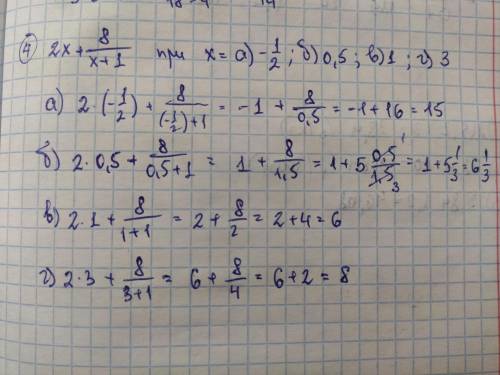 ④ 2x + 8/(x+1) при x = а) -1/2; б) 0,5; в) 1; г) 3
а) 2·(-1/2) + 8/((-1/2)+1) = -1 + 8/0,5 = -1+16 = 15
б) 2·0,5 + 8/(0,5+1) = 1 + 8/1,5 = 1 + 5 0,5 1/1,5 3 = 1+5 1/3 = 6 1/3
в) 2·1 + 8/(1+1) = 2 + 8/2 = 2+4 = 6
г) 2·3 + 8/(3+1) = 6 + 8/4 = 6+2 = 8